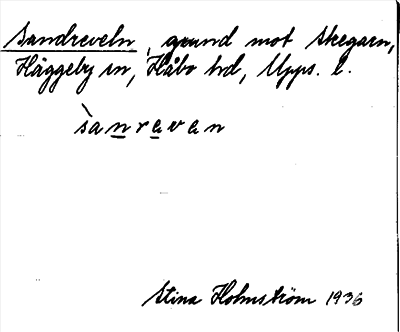 Sandreveln, grund mot Skegarn,
Häggeby sn, Håbo hd, Upps. l.
`sanrevan
Stina Holmström 1936